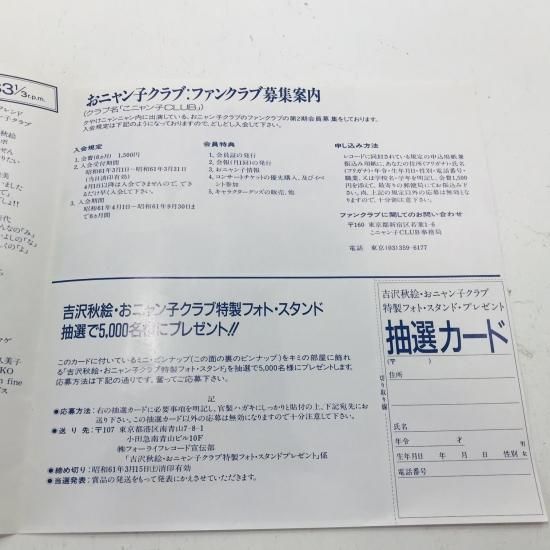 33⅓r.p.m.
おニャン子クラブ:ファンクラブ募集案内
(クラブ名「こニャン子CLUB」)
夕やけニャンニャン内に出演している、おニャン子クラブのファンクラブの第2期会員募集をしております。
入会規定は下記のようになっておりますので、どしどし入会して下さい。
入会規定
1.会費(6カ月) 1,500円
2.入会受付期間
昭和61年3月1日~昭和61年3月31日
(当日消印有効)
4月1日以降は入会できませんので、で
るだけ早く入会して下さい。
3.入会期間
昭和61年4月1日~昭和61年9月30日ま
で6カ月間
会員特典
1.会員証の発行
2.会報(月1回)の発行
3.おニャン子情報
4.コンサートチケットの優先購入、及びイベ
ント参加
5.キャラクターグッズの販売、他
申し込み方法
レコードに同封されている規定の申込用紙兼
振替込み用紙に、あなたの住所(フリガナ)・氏名
(フリガナ)・年令・生年月日・性別・電話番号・
職業、又は学校名・学年を明記し、会費1,500
円を添えて、最寄りの郵便局にてお振込み下さ
い。尚、上記の規定口以外の応募は無効となり
ますので、十分御注意下さい。
ファンクラブに関してのお問い合わせ
〒160 東京都新宿区若葉1-6
こニャン子CLUB事務局
電話 東京(03)359-6177
吉沢秋絵・おニャン子クラブ特製フォト・スタンド
抽選で5,000名様にプレゼント!!
このカードに付いているミニ・ピンナップ(この面の裏のピンナップ)をキミの部屋に飾れる
「吉沢秋絵・おニャン子クラブ特製フォト・スタンド」を抽選で5,000名様にプレゼントします。
応募方法は下記の通りです。奮ってご応募下さい。
記
●応募方法:右の抽選カードに必要事項を明記し、官製ハガキにしっかりと貼付の上、下記宛先にお
送り下さい。この抽選カード以外の応募は無効になりますので十分注意して下さい。
●送り先:〒107 東京都港区南青山7-8-1
小田急南青山ビル10F
㈱フォーライフレコード宣伝部
「吉沢秋絵・おニャン子クラブ特製フォト・スタンドプレゼント」係
●締め切り:昭和61年3月15日(土)消印有効
●当選発表:賞品の発送をもって発表にかえさせていただきます。
切り取り線
吉沢秋絵・おニャン子クラブ
特製フォト・スタンド・プレゼント
抽選カード
(〒 )
住所
氏名
年令 才 男
生年月日 年 月 日 性別 女
電話番号